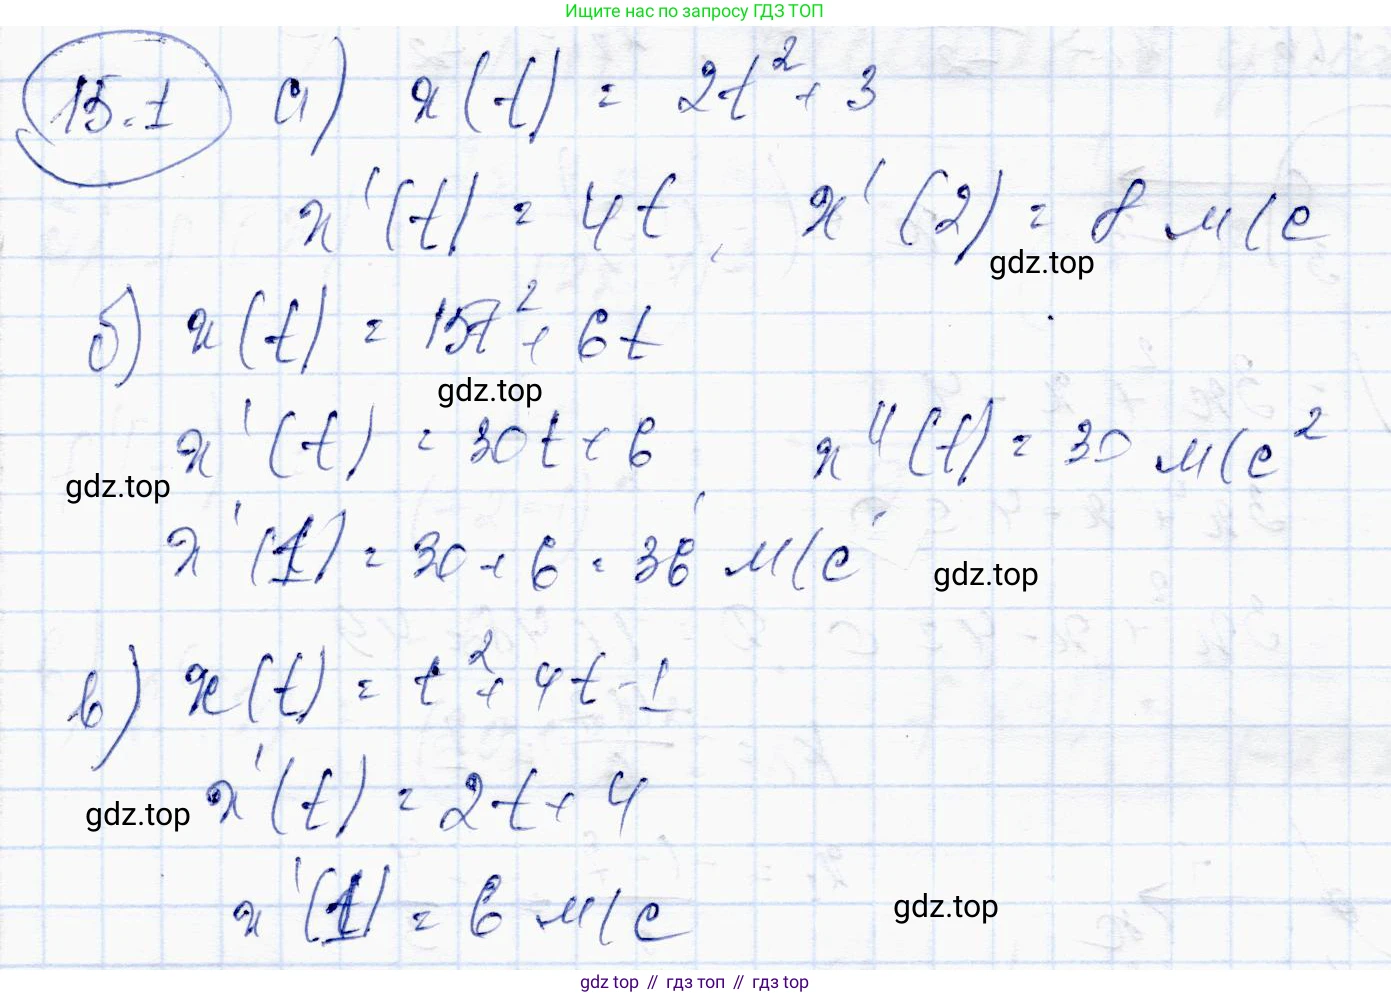 Ищите нас по запросу ГДЗ ТОП
15.1 а) x(t) = 2t² + 3
x'(t) = 4t, x'(2) = 8 м/с
gdz.top
б) x(t) = 15t² + 6t
gdz.top
x'(t) = 30t + 6 x''(t) = 30 м/с²
gdz.top
x'(1) = 30 + 6 = 36 м/с
gdz.top
в) x(t) = t² + 4t - 1
x'(t) = 2t + 4
gdz.top
x'(1) = 6 м/с
gdz.top
gdz top // гдз топ // gdz top